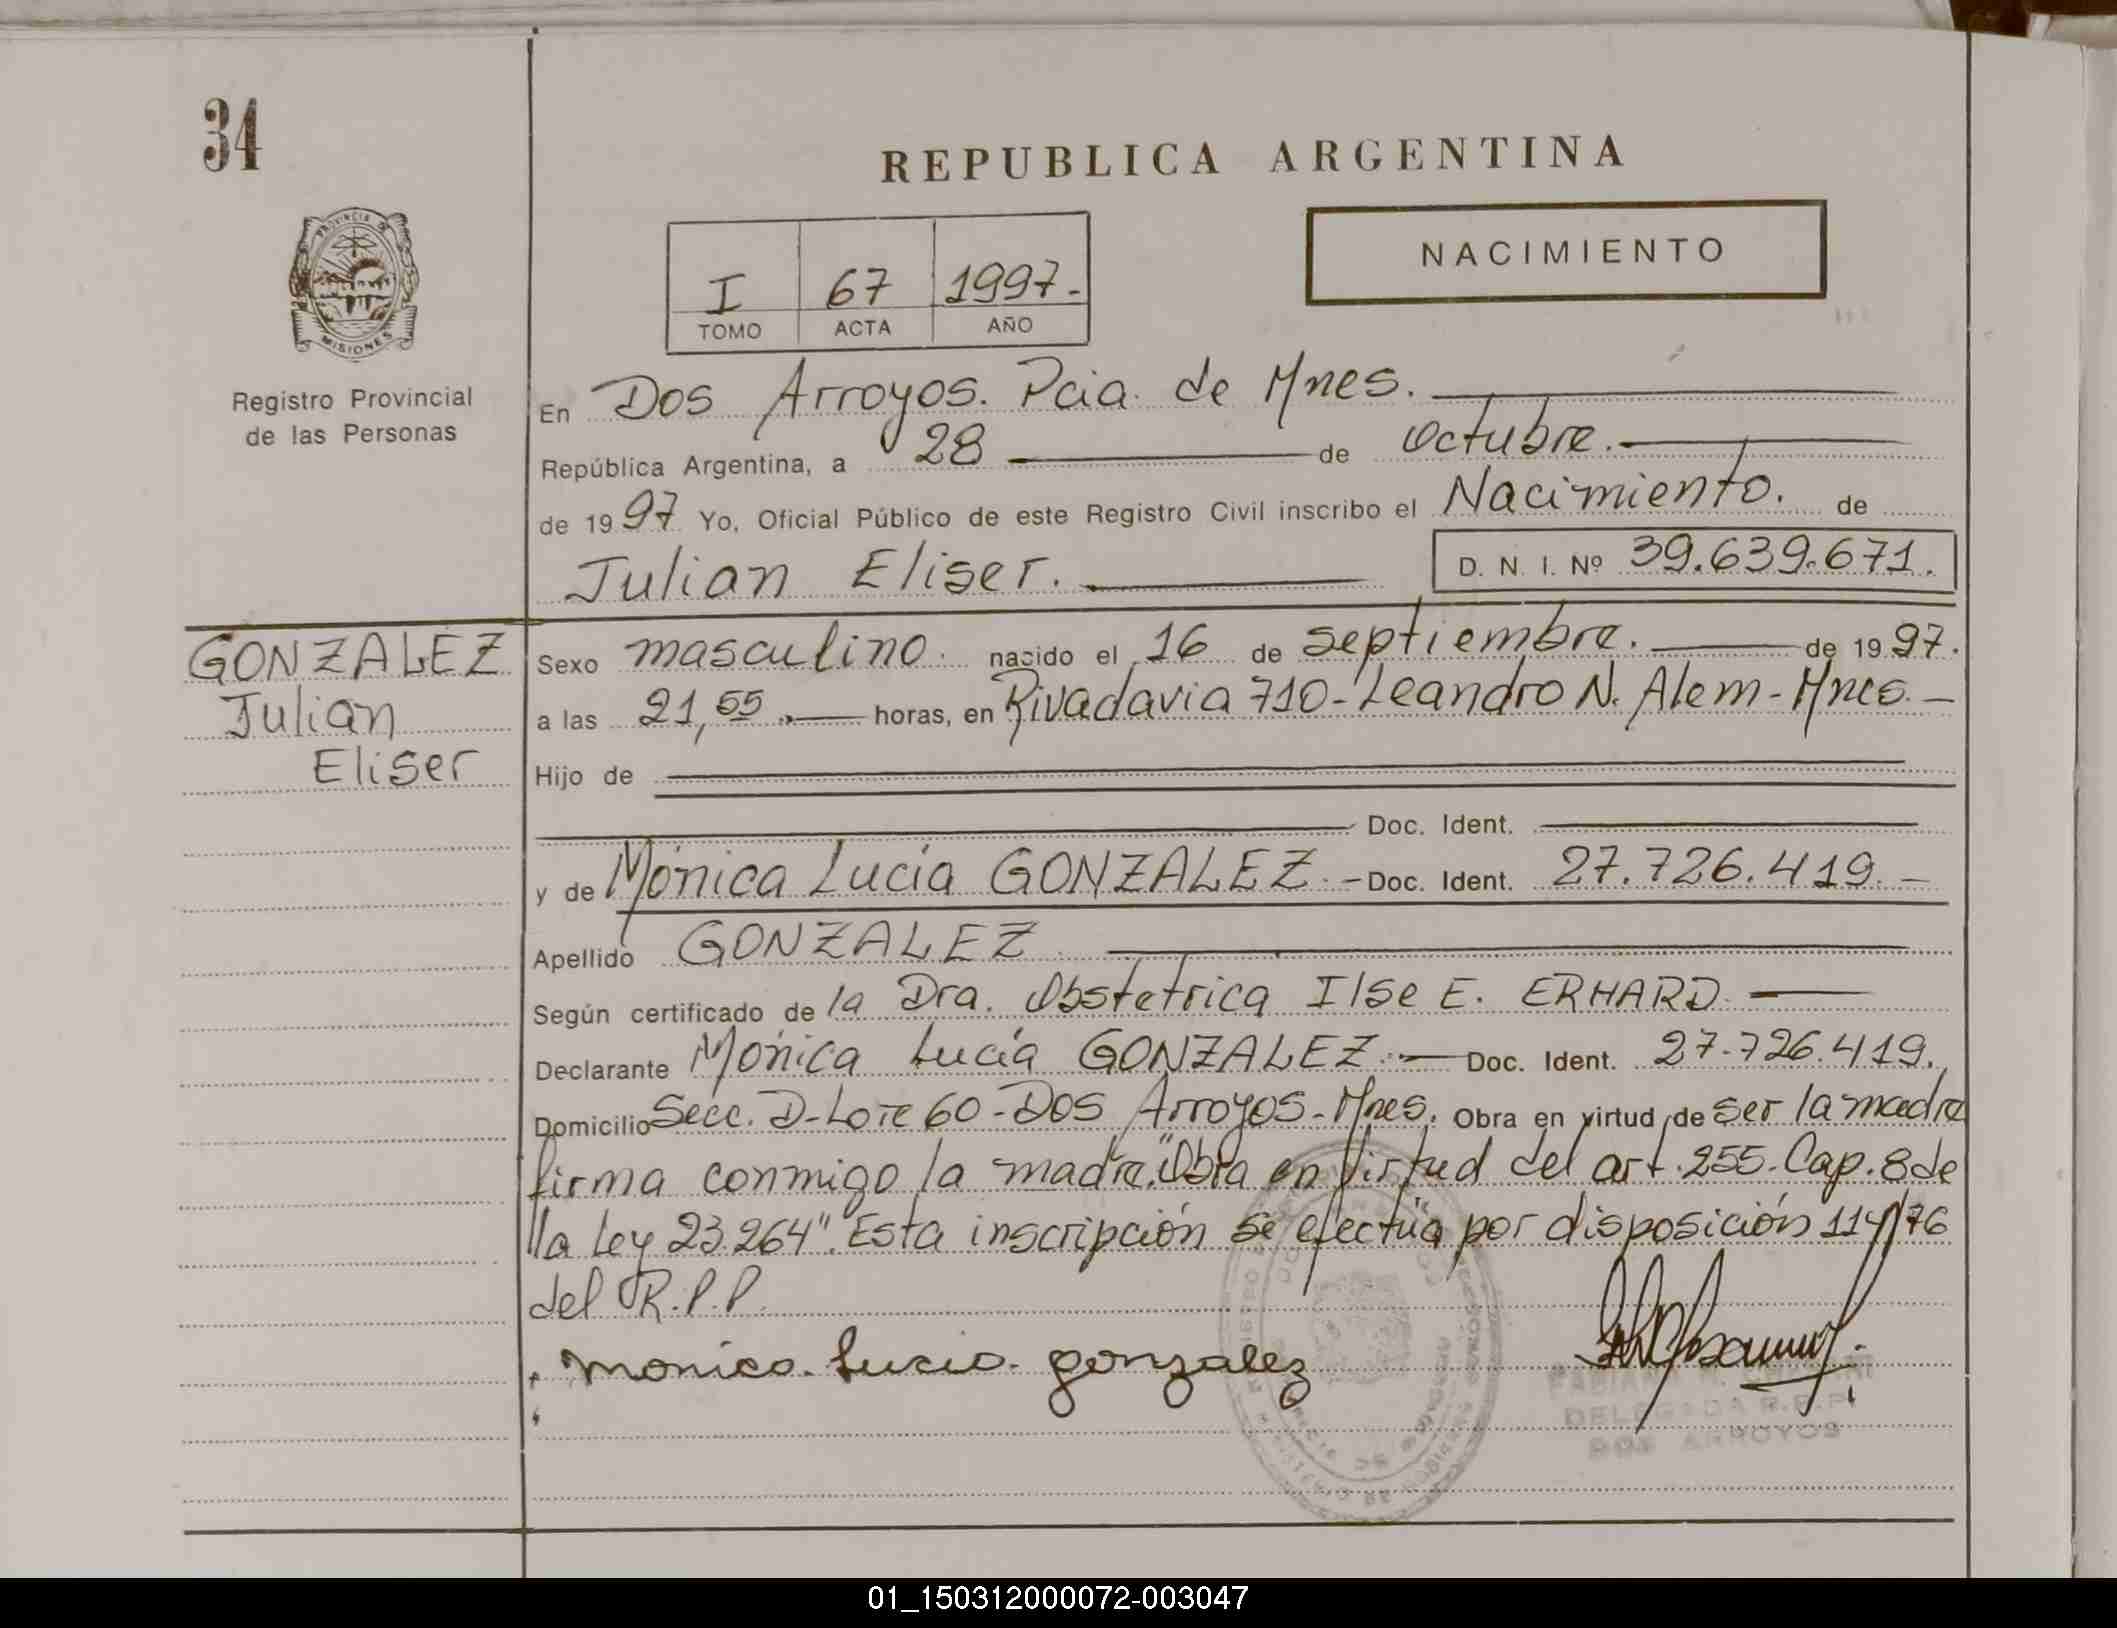 34
REPUBLICA ARGENTINA
NACIMIENTO
I 67 1997.-
TOMO ACTA AÑO
PROVINCIA DE
MISIONES
Registro Provincial
de las Personas
En Dos Arroyos. Pcia. de Mnes.
República Argentina, a 28 de octubre.
de 1997 Yo, Oficial Público de este Registro Civil inscribo el Nacimiento. de
Julian Eliser.
D. N. I. Nº 39.639.671.
GONZALEZ
Julian
Eliser
Sexo masculino. nacido el 16 de septiembre. de 1997.
a las 21,55 horas, en Rivadavia 710-Leandro N. Alem-Mnes.-
Hijo de
Doc. Ident.
y de Mónica Lucía GONZALEZ.- Doc. Ident. 27.726.419.-
Apellido GONZALEZ
Según certificado de la Dra. Obstetrica Ilse E. ERHARD.
Declarante Mónica Lucía GONZALEZ.- Doc. Ident. 27.726.419.
Domicilio Secc. D-Lote 60-Dos Arroyos-Mnes. Obra en virtud de ser la madre
firma conmigo la madre."Obra en Virtud del art. 255. Cap. 8 de
la Ley 23.264". Esta inscripción se efectúa por disposición 114/76
del R.P.P.
monica. Lucia. gonzalez
DELEGADA R.P.P.
DOS ARROYOS
01_150312000072-003047